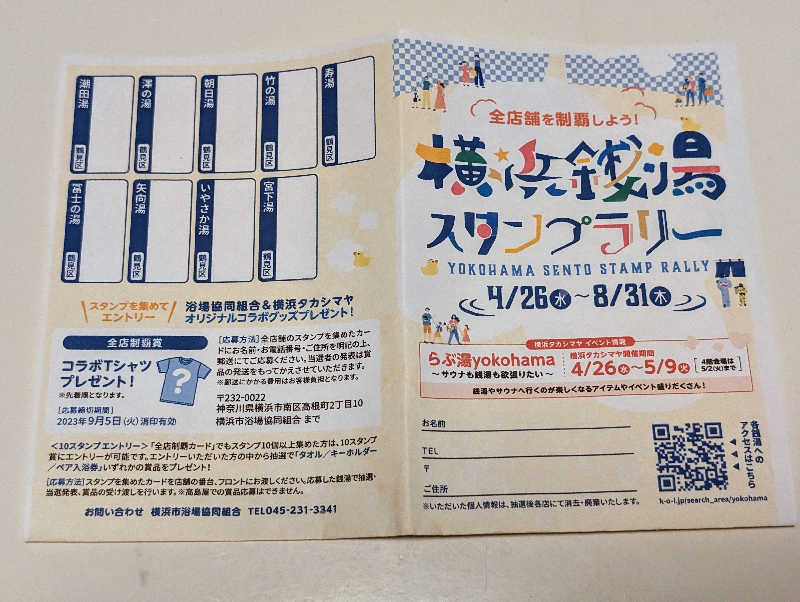 潮田湯
鶴見区
澤の湯
鶴見区
朝日湯
鶴見区
竹の湯
鶴見区
寿湯
鶴見区
冨士の湯
鶴見区
矢向湯
鶴見区
いやさか湯
鶴見区
宮下湯
鶴見区
スタンプを集めて
エントリー
浴場協同組合&横浜タカシマヤ
オリジナルコラボグッズプレゼント!
全店制覇賞
コラボTシャツ
プレゼント!
※先着順となります。
[応募締切期間]
2023年9月5日(火)消印有効
?
[応募方法]全店舗のスタンプを集めたカー
ドにお名前・お電話番号・ご住所を明記の上、
郵送にてご応募ください。当選者の発表は賞
品の発送をもってかえさせていただきます。
※郵送にかかる費用はお客様負担となります。
〒232-0022
神奈川県横浜市南区高根町2丁目10
横浜市浴場協同組合 まで
<10スタンプエントリー>「全店制覇カード」でもスタンプ10個以上集めた方は、10スタンプ
賞にエントリーが可能です。エントリーいただいた方の中から抽選で「タオル/キーホルダー
/ペア入浴券」いずれかの賞品をプレゼント!
[応募方法]スタンプを集めたカードを店舗の番台、フロントにお渡しください。応募した銭湯で抽選・
当選発表、賞品の受け渡しを行います。※高島屋での賞品応募はできません。
お問い合わせ 横浜市浴場協同組合 TEL045-231-3341
全店舗を制覇しよう!
横浜銭湯
スタンプラリー
YOKOHAMA SENTO STAMP RALLY
4/26水~8/31木
横浜タカシマヤ イベント情報
らぶ湯yokohama
~サウナも銭湯も欲張りたい~
横浜タカシマヤ開催期間
4/26水~5/9火
4階会場は
5/2(火)まで
銭湯やサウナへ行くのが楽しくなるアイテムやイベント盛りだくさん!
お名前
TEL
〒
ご住所
※いただいた個人情報は、抽選後各店にて消去・廃棄いたします。
各銭湯への
アクセスはこちら
k-o-i.jp/search_area/yokohama